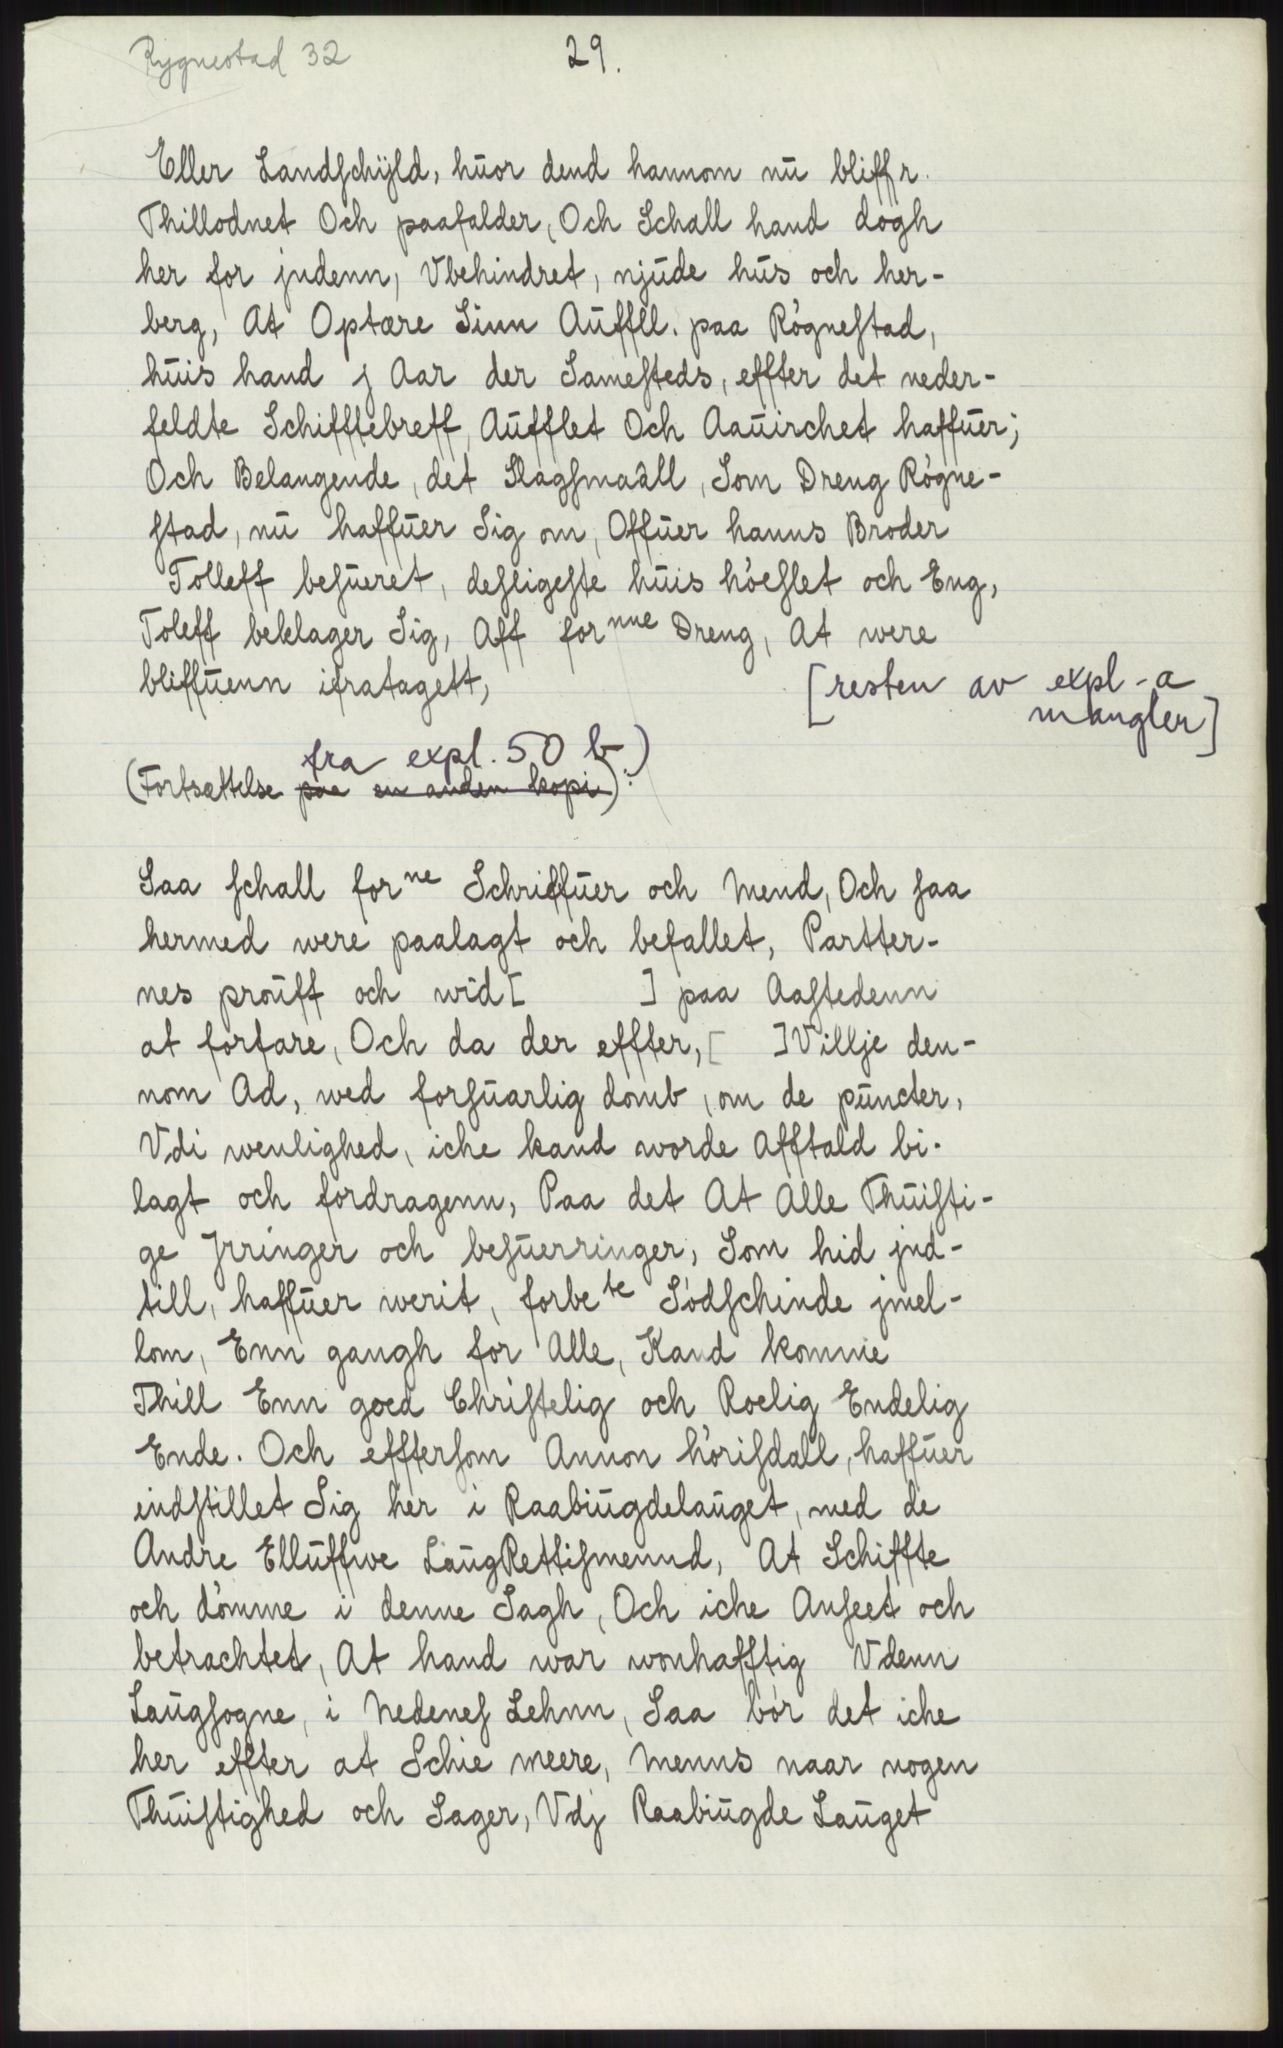 Rygnestad 32
29.
Eller Landschÿld, huor dend hannom nu bliffr.
Thillodnet Och paafalder, Och Schall hand dogh
her for jndenn, Vbehindret, njude hus och her-
berg, At Optære Sinn Auffll. paa Røgnestad,
huis hand j Aar der Samesteds, effter det neder-
feldte Schifftebreff, Aufflet Och Aauirchet haffuer;
Och Belangende, det Slagsmaåll, Som Dreng Røgne-
stad, nu haffuer Sig om, Offuer hanns Broder
Tolleff besueret, desligeste huis høeslet och Eng,
Toleff beklager Sig, Aff fornne Dreng, At were
bliffuenn ifratagett,
[resten av expl-a
mangler]
fra expl. 50 b)
(Fortsættelse paa en anden kopi):
Saa schall forne Schriffuer och Mend, Och saa
hermed were paalagt och befallet, Partter-
nes prouff och wid[ ] paa Aastedenn
at forfare, Och da der effter, [ ] Villje den-
nom Ad, wed forsuarlig domb, om de puncter,
Vdi wenlighed, iche kand worde Afftald bi-
lagt och fordragenn, Paa det At Alle Thuisti-
ge Jrringer och besuerringer, Som hid jnd-
till, haffuer werit, forbete Sødschinde jmel-
lom, Enn gangh for Alle, Kand komme
Thill Enn goed Christelig och Roelig Endelig
Ende. Och efftersom Annon hørisdall, haffuer
eindstillet Sig her i Raabiugdelauget, med de
Andre Elluffwe LaugRettismennd, At Schiffte
och dømme i denne Sagh, Och iche Anseet och
betrachtet, At hand war wonhafftig Vdenn
Laugsogne, i Nedenes Lehnn, Saa bør det iche
her effter at Schie meere, Menns naar nogen
Thuistighed och Sager, Vdj Raabiugde Lauget